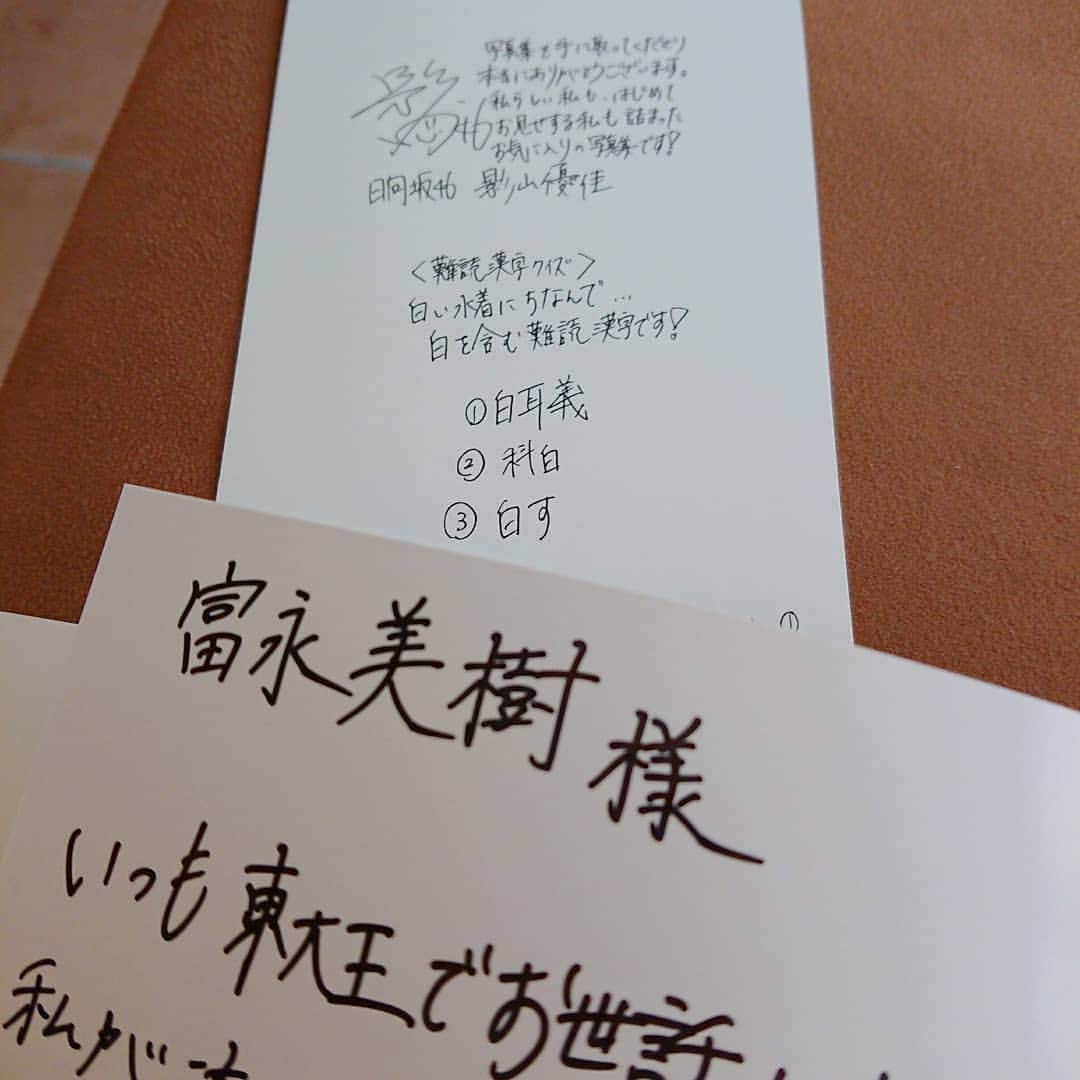 写真集を手に取ってくださり
本当にありがとうございます。
私らしい私も、はじめて
お見せする私も詰まった
お気に入りの写真集です!
日向坂46 影山優佳
<難読漢字クイズ>
白い水着にちなんで…
白を含む難読漢字です!
①白耳義
②科白
③白す
①
富永美樹様
いつも東大王でお世話
私が